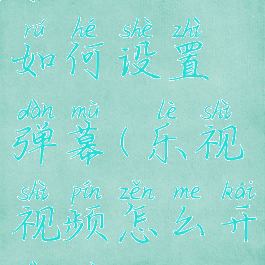 rú hé shè zhì
如何设置
dàn mù lè shì
弹幕(乐视
shì pín zěn me kāi
视频怎么开